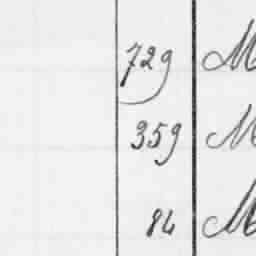 729 M
359 M
84 M